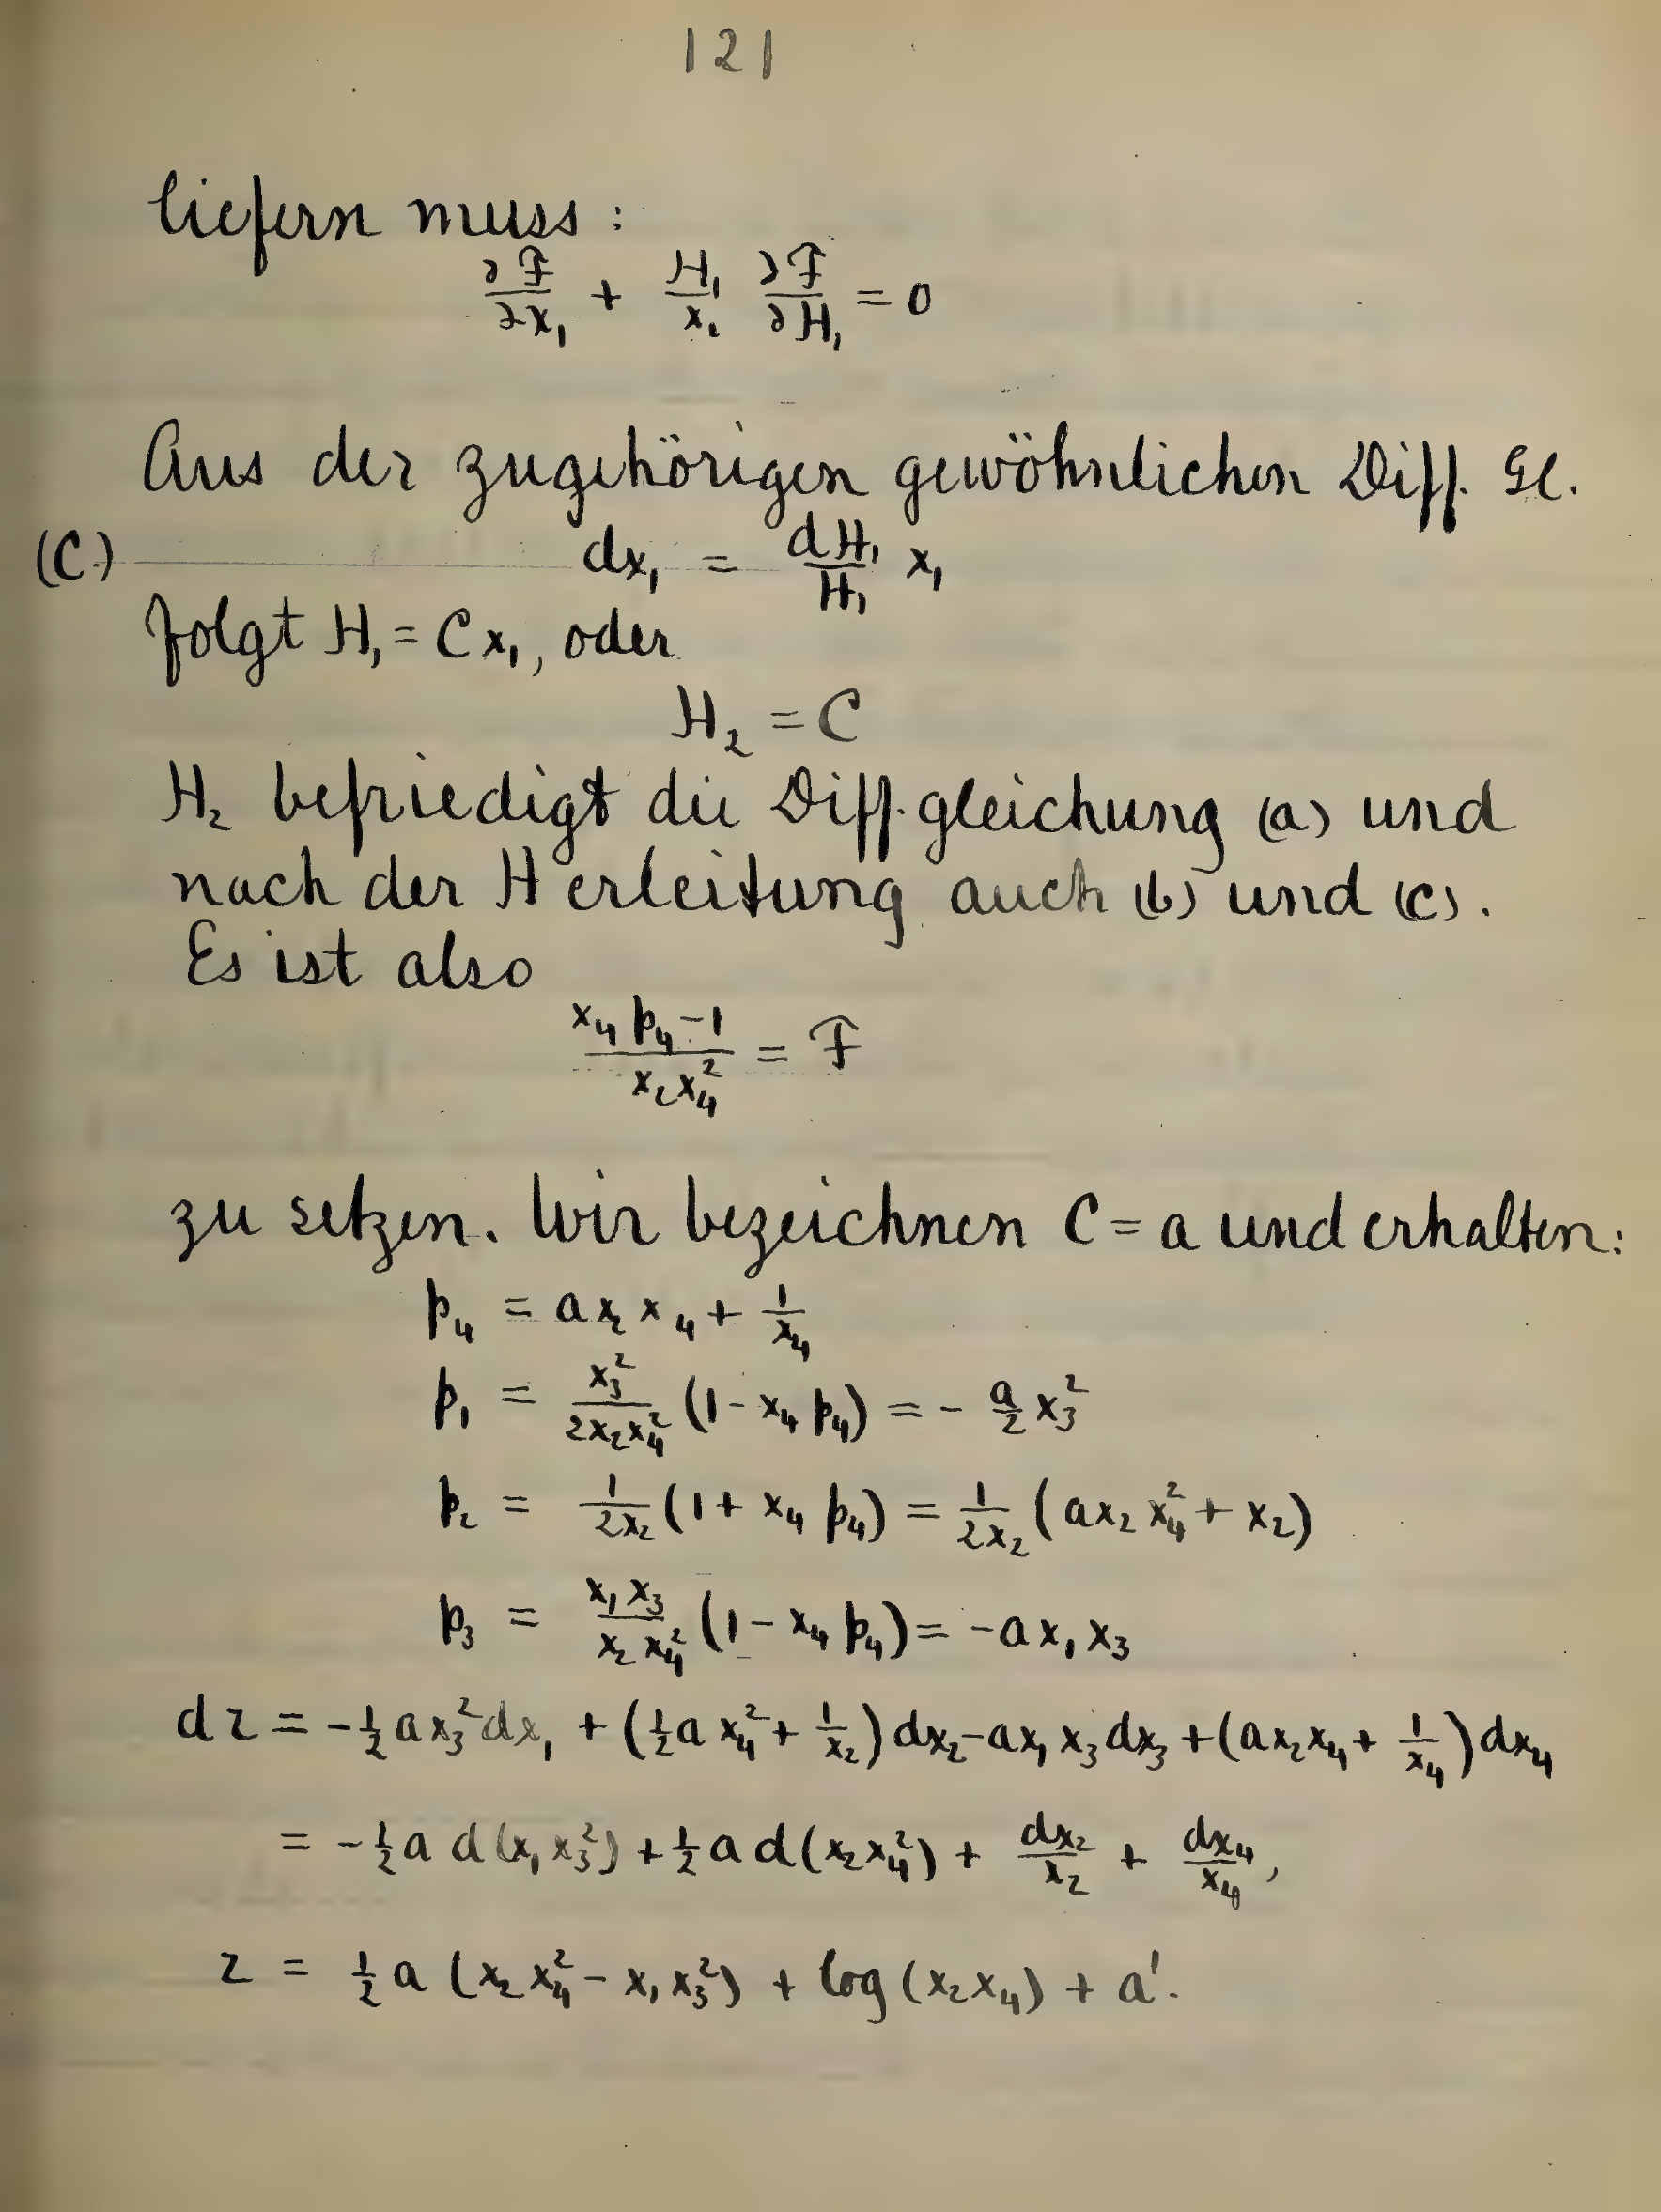 121
liefern muss:
∂F/∂x₁ + H₁/x₁ ∂F/∂H₁ = 0
Aus der zugehörigen gewöhnlichen Diff. Gl.
(C.) dx₁ = dH₁/H₁ x₁
folgt H₁ = Cx₁, oder
H₂ = C
H₂ befriedigt die Diff.gleichung (a) und
nach der Herleitung auch (b) und (c).
Es ist also
(x₄p₄-1)/(x₂x₄²) = F
zu setzen. Wir bezeichnen C = a und erhalten:
p₄ = ax₂x₄ + 1/x₄
p₁ = x₃²/(2x₂x₄²) (1 - x₄p₄) = - a/2 x₃²
p₂ = 1/(2x₂) (1 + x₄p₄) = 1/(2x₂) (ax₂x₄² + x₂)
p₃ = x₁x₃/(x₂x₄²) (1 - x₄p₄) = -ax₁x₃
dz = -½ax₃²dx₁ + (½ax₄² + 1/x₂)dx₂ - ax₁x₃dx₃ + (ax₂x₄ + 1/x₄)dx₄
= -½a d(x₁x₃²) + ½a d(x₂x₄²) + dx₂/x₂ + dx₄/x₄,
z = ½a (x₂x₄² - x₁x₃²) + log(x₂x₄) + a'.